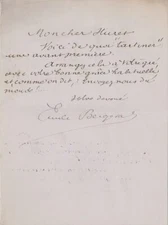 Mon cher Huret
Voici de quoi "tartiner"
une avant première.
Arrangez cela à votre gré,
avec votre bonne grâce habituelle
et comme on dit, envoyez-nous du
monde!
votre dévoué
Emile Bergerat